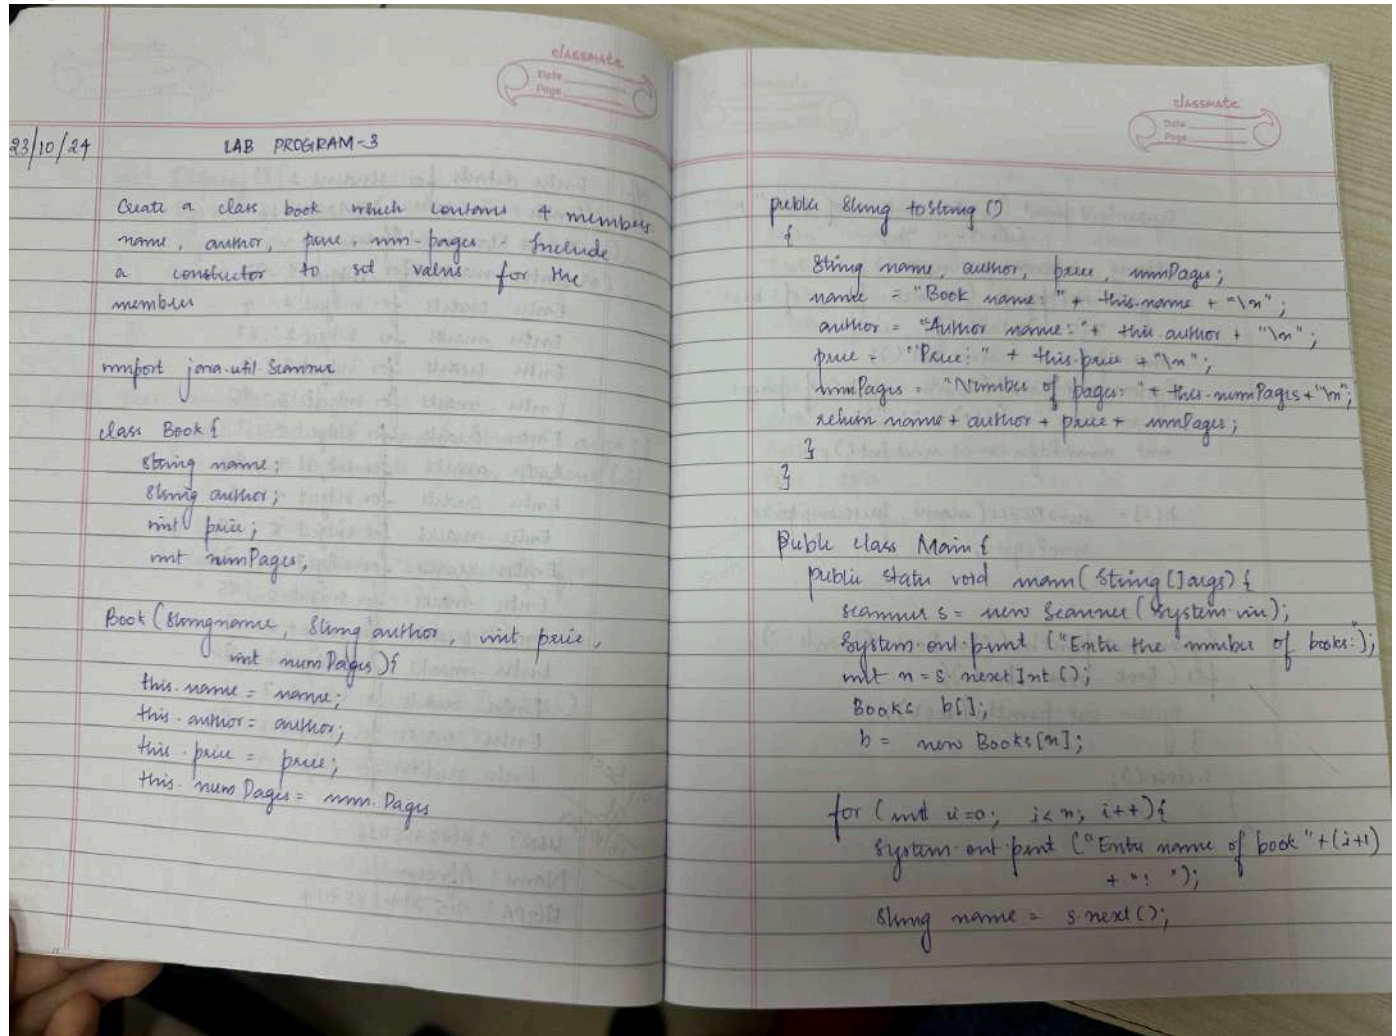 classmate
Date
Page
23/10/24
LAB PROGRAM-3
Create a class book which contains 4 members
name, author, price, num-pages. Include
a constructor to set values for the
members
import java.util.Scanner
class Book {
string name;
String author;
int price;
int numPages;
Book (String name, String author, int price,
int numPages){
this.name = name;
this.author = author;
this.price = price;
this.numPages = num.Pages
classmate
Date
Page
public String toString ()
{
String name, author, price, numPages;
name = "Book name: " + this.name + "\n";
author = "Author name: " + this.author + "\n";
price = "Price: " + this.price + "\n";
numPages = "Number of pages: " + this.numPages + "\n";
return name + author + price + numPages;
}
}
Public class Main {
public static void main( String []args) {
scanner s = new Scanner (System.in);
System.out.print ("Enter the number of books:");
int n = s.nextInt ();
Books b[];
b = new Books [n];
for (int i=0; i<n; i++){
System.out.print ("Enter name of book "+(i+1)
+ ": ");
String name = s.next ();